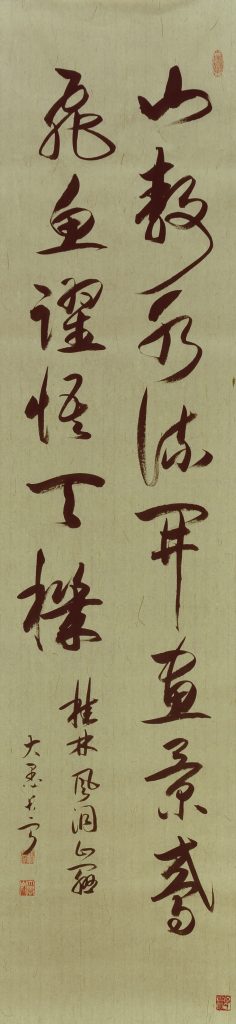 山靜水流開畫景鳶
飛魚躍悟天機
桂林風洞山聯
大